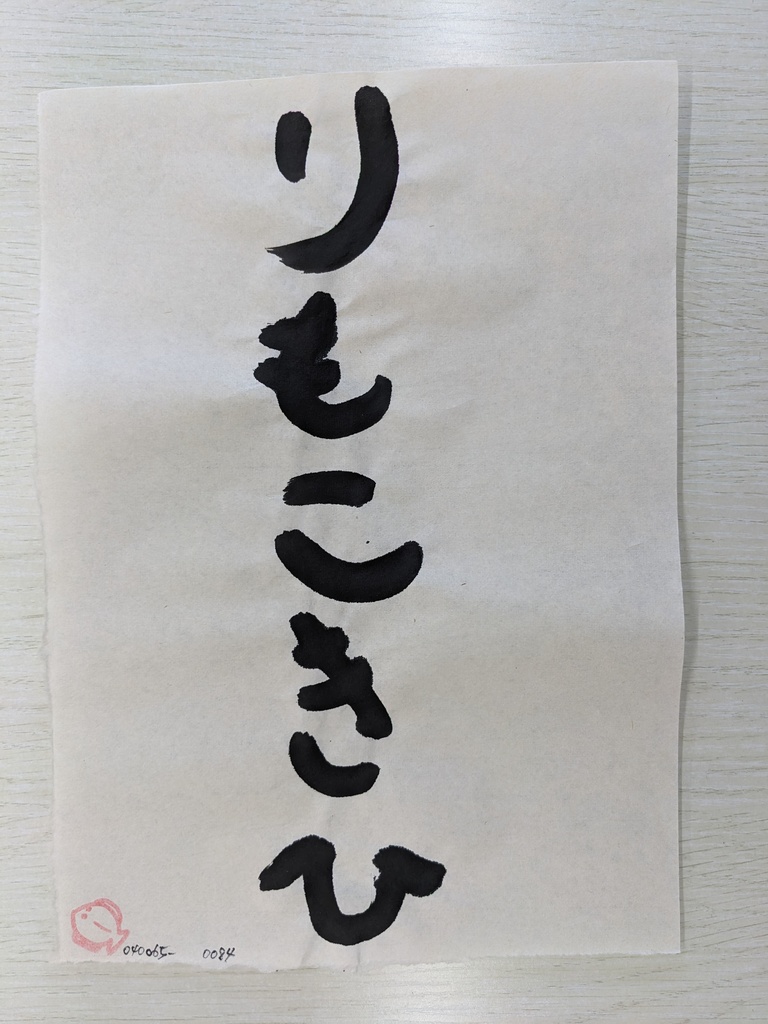 りもこきひ
040065- 0084